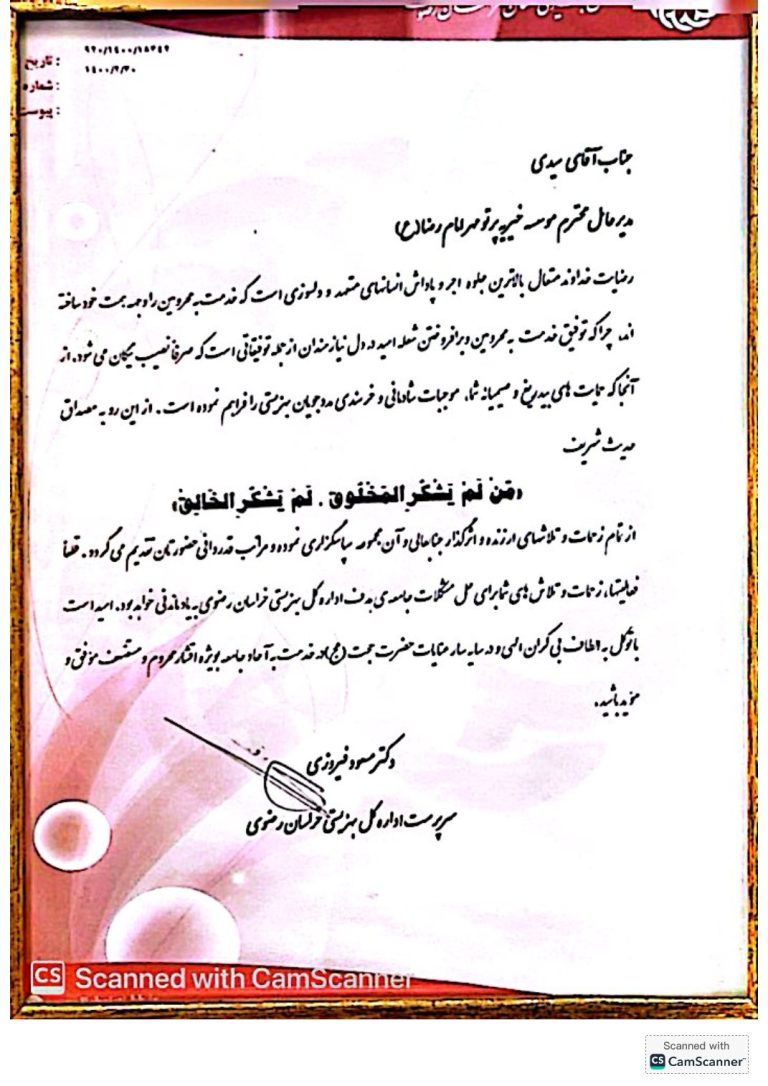 تاریخ :
شماره :
پیوست :
۹۲۰/۱۴۰۰/۱۵۲۴۲
۱۴۰۰/۲/۲۰
جناب آقای سیدی
مدیرعامل محترم موسسه خیریه پرتو مهر امام رضا(ع)
رضایت خداوند متعال بالاترین جلوه اجر و پاداش انسانهای متعهد و دلسوزی است که خدمت به محرومین را وجهه همت خود ساخته
اند، چرا که توفیق خدمت به محرومین و برافروختن شعله امید در دل نیازمندان از جمله توفیقاتی است که صرفا نصیب نیکان می شود. از
آنجا که حمایت های بیدریغ و صمیمانه شما، موجبات شادمانی و خرسندی مددجویان بهزیستی را فراهم نموده است. از این رو به مصداق
حدیث شریف
«مَن لَم یَشکُرِ المَخلُوقَ ، لَم یَشکُرِ الخالِق»
از تمام زحمات و تلاشهای ارزنده و اثرگذار جنابعالی و آن مجموعه سپاسگزاری نموده و مراتب قدردانی حضورتان تقدیم می گردد. قطعاً
فعالیتها، زحمات و تلاش های شما برای حل مشکلات جامعه ی هدف اداره کل بهزیستی خراسان رضوی به یاد ماندنی خواهد بود. امید است
با توکل به الطاف بی کران الهی و در سایه سار عنایات حضرت حجت (عج) در خدمت به آحاد جامعه بویژه اقشار محروم و مستضعف موفق و
موید باشید.
دکتر مسعود فیروزی
سرپرست اداره کل بهزیستی خراسان رضوی
CS Scanned with CamScanner
Scanned with
CS CamScanner